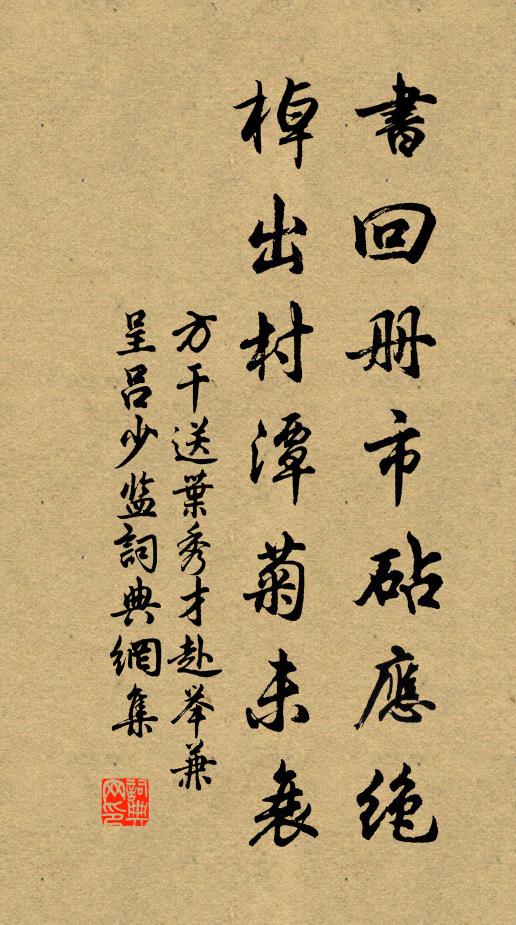 書回册市砧應绝
棹出村潭菊未衰
方干送葉秀才赴举兼
呈吕少监詞典網集
詞典网印